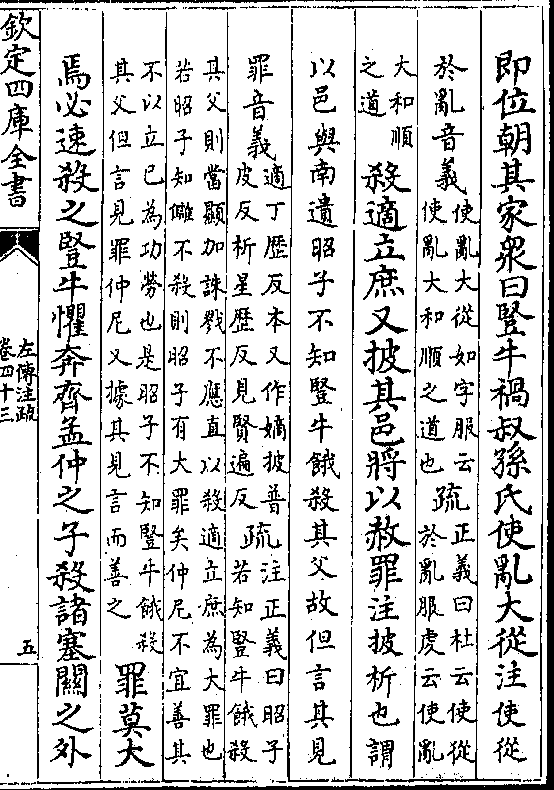 即位朝其家衆曰豎牛禍叔孫氏使亂大從注使從
於亂音義
使亂大從如字服云
使亂大和順之道也
疏
正義曰杜云使從
於亂服虔云使亂
大和順
之道
殺適立庶又披其邑將以赦罪注披析也謂
以邑與南遺昭子不知豎牛餓殺其父故但言其見
罪音義
適丁歴反本又作嫡披普
皮反析星歴反見賢遍反
疏
注正義曰昭子
若知豎牛餓殺
其父則當顯加誅戮不應直以殺適立庶為大罪也
若昭子知讎不殺則昭子有大罪矣仲尼不宜善其
不以立已為功勞也是昭子不知豎牛餓殺
其父但言見罪仲尼又據其見言而善之
罪莫大
焉必速殺之豎牛懼奔齊孟仲之子殺諸塞關之外
欽定四庫全書
左傳注疏
卷四十三
五